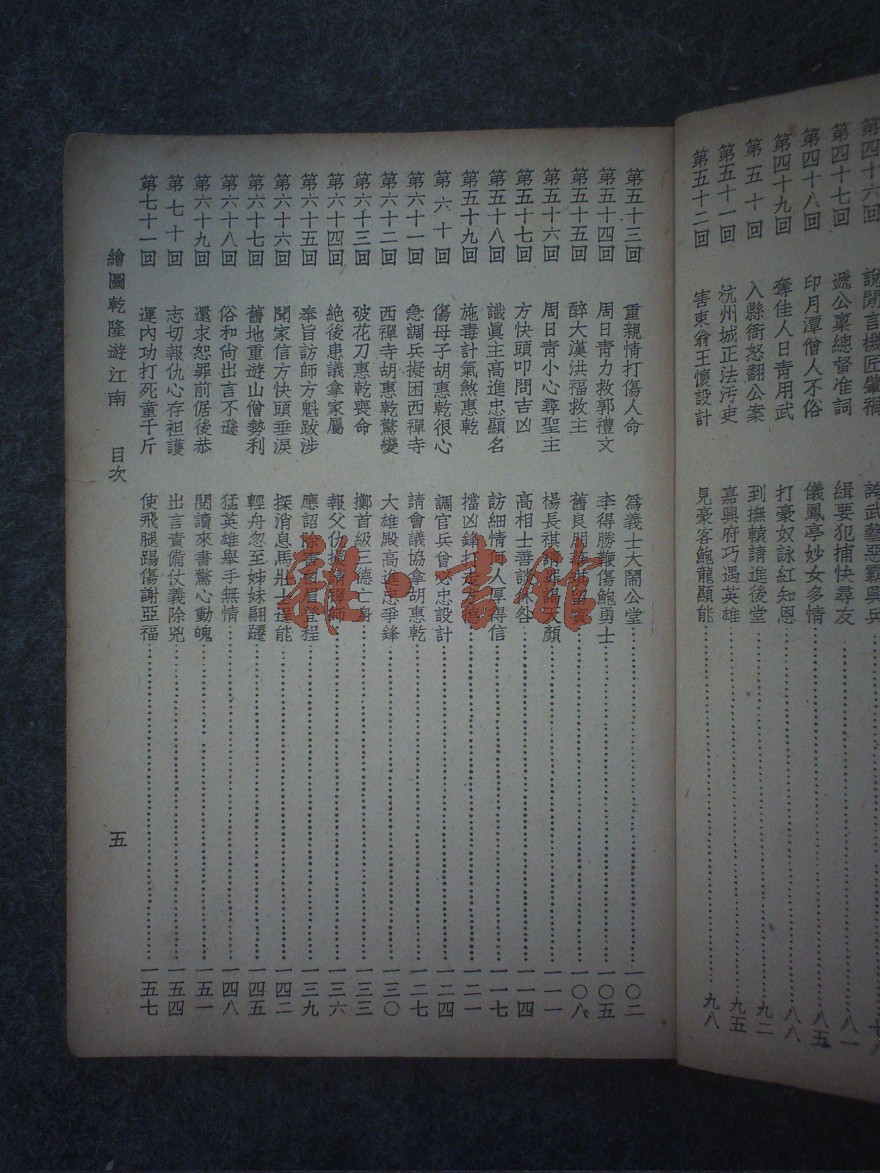 第四十六回 說閒言機匠
第四十七回 遞公稟總督准詞 緝要犯捕快尋友 八一
第四十八回 印月潭僧人不俗 儀鳳亭妙女多情 八五
第四十九回 奪佳人日青用武 打豪奴詠紅知恩 八八
第五十回 入縣衙怒翻公案 到撫轅請進後堂 九二
第五十一回 杭州城正法污吏 嘉興府巧遇英雄 九五
第五十二回 害東翁王懷設計 見豪客鮑龍顯能 九八
第五十三回 重親情打傷人命 為義士大鬧公堂 一〇二
第五十四回 周日青力救郭禮文 李得勝鞭傷鮑勇士 一〇五
第五十五回 醉大漢洪福救主 舊良朋 一〇八
第五十六回 周日青小心尋聖主 楊長祺 天顏 一一一
第五十七回 方快頭叩問吉凶 高相士善談 咎 一一四
第五十八回 識眞主高進忠顯名 訪細情何人厚得信 一一七
第五十九回 施毒計氣煞惠乾 擋凶鋒打走方德 一二一
第六十回 傷母子胡惠乾很心 調官兵曾必忠設計 一二四
第六十一回 急調兵擬困西禪寺 請會議協拿胡惠乾 一二七
第六十二回 西禪寺胡惠乾驚變 大雄殿高進忠爭鋒 一三〇
第六十三回 破花刀惠乾喪命 擲首級三德亡身 一三三
第六十四回 絶後患議拿家屬 報父仇 一三六
第六十五回 奉旨訪師方魁跋涉 應詔除害 登程 一三九
第六十六回 聞家信方快頭垂淚 探消息馬壯士逞能 一四二
第六十七回 舊地重遊山僧勢利 輕舟忽至姊妹翩躚 一四五
第六十八回 俗和尙出言不遜 猛英雄舉手無情 一四八
第六十九回 還求恕罪前倨後恭 閱讀來書驚心動魄 一五一
第七十回 志切報仇心存袒護 出言責備仗義除兇 一五四
第七十一回 運內功打死童千斤 使飛腿踢傷謝亞福 一五七
繪圖乾隆遊江南 目次 五
雜·書館